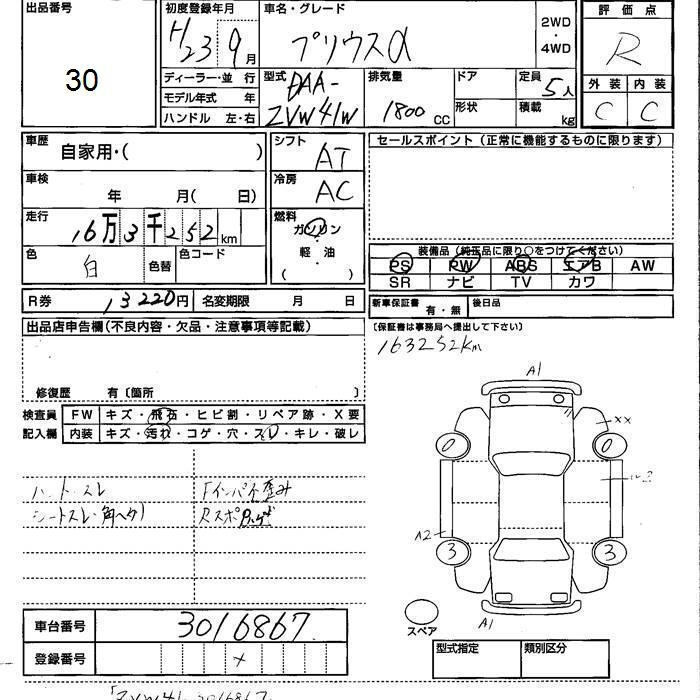 出品番号
30
初度登録年月
H23 9月
車名・グレード
プリウスα
2WD
・
4WD
評価点
R
ディーラー・並 行
モデル年式 年
ハンドル 左・右
型式
DAA-
ZVW41W
排気量
1800 cc
ドア
形状
定員
5人
積載
kg
外装 内装
C C
車歴
自家用・( )
シフト
AT
セールスポイント（正常に機能するものに限ります）
車検
年 月( 日)
冷房
AC
走行
16万3千252km
燃料
ガソリン
軽・油
( )
色
白
色替
色コード
装備品（純正品に限り○をつけてください）
PS PW ABS エアB AW
SR ナビ TV カワ
R券 13220円 名変期限 月 日
新車保証書 有・無 後日品
出品店申告欄(不良内容・欠品・注意事項等記載)
（保証書は事務局へ提出して下さい）
163252km
修復歴 有〔箇所 〕
検査員 FW キズ・飛石・ヒビ割・リペア跡・X要
記入欄 内装 キズ・汚れ・コゲ・穴・スレ・キレ・破レ
A1
XX
0 0
ハンドルスレ Fインパネ歪み
シートスレ・角ヘタリ
A2
3 3
スペア
A1
車台番号 3016867
登録番号
型式指定 類別区分
ZVW41-3016867